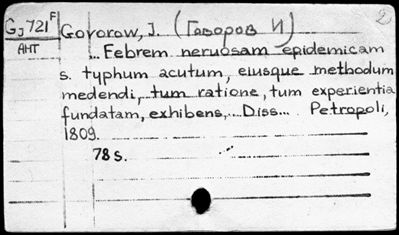 GJ721F Govorow, J. (Говоров И)
2
АНТ ... Febrem nervosam epidemicam
s. typhum acutum, eiusque methodum
medendi, tum ratione, tum experientia
fundatam, exhibens,... Diss... Petropoli,
1809.
78 s.